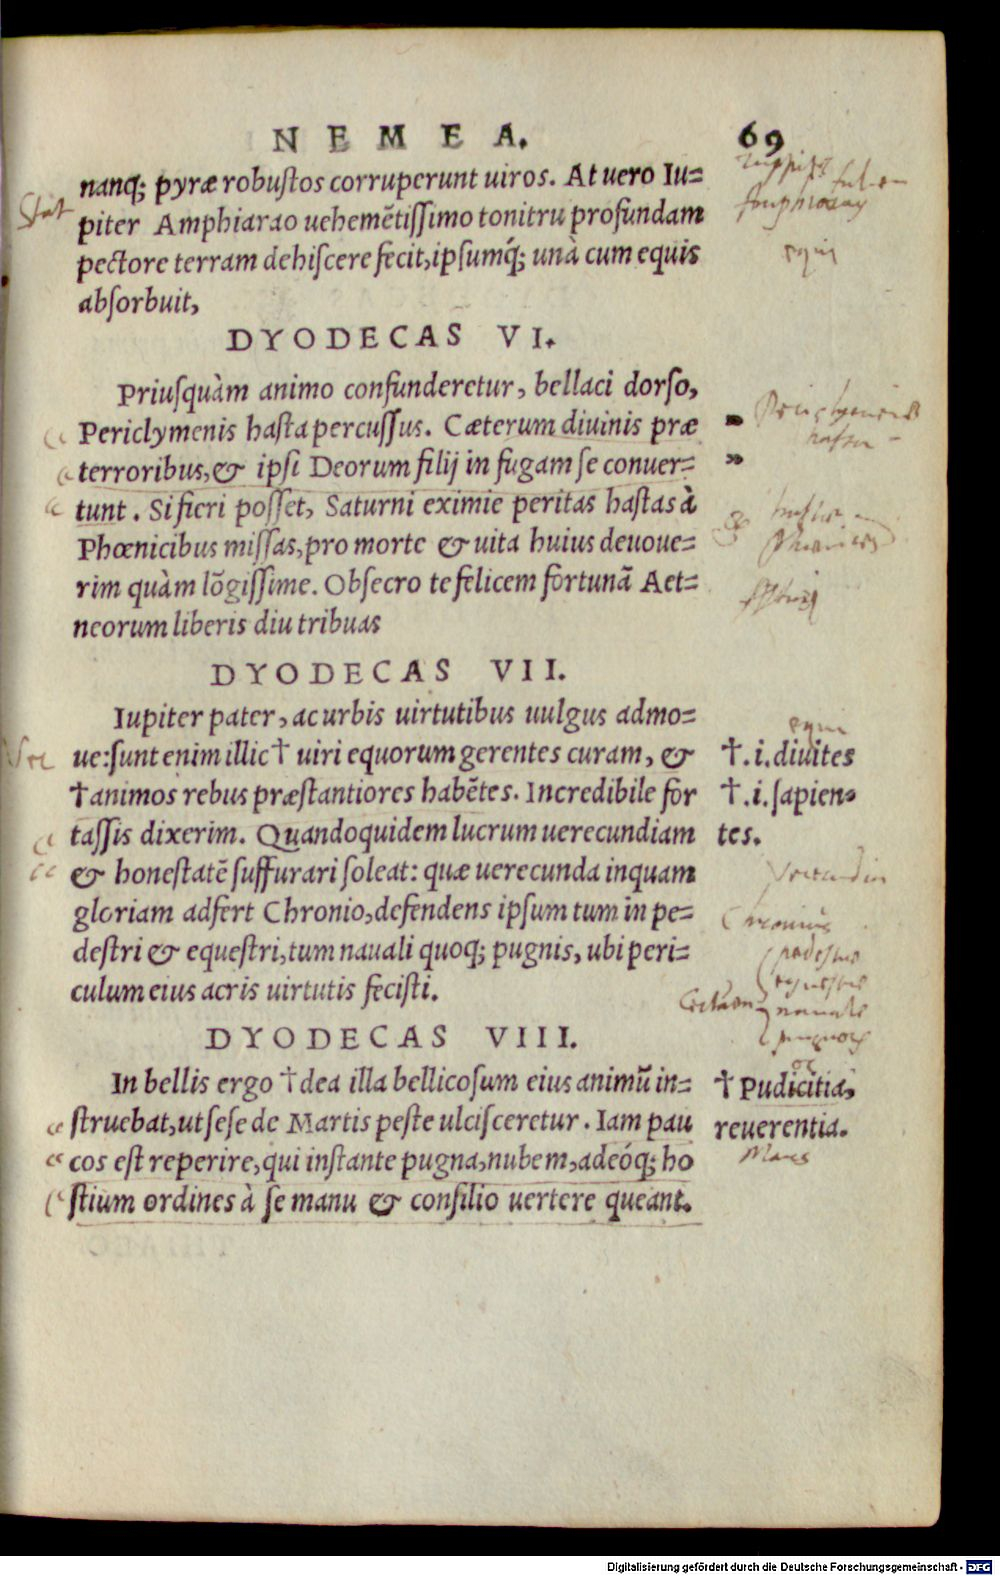 NEMEA. 69
nanq; pyræ robustos corruperunt uiros. At uero Iu=
piter Amphiarao uehemẽtissimo tonitru profundam
pectore terram dehiscere fecit, ipsumq́; unà cum equis
absorbuit,
equi
DYODECAS VI.
Priusquàm animo confunderetur, bellaci dorso,
Periclymenis hasta percussus. Cæterum diuinis præ
terroribus, & ipsi Deorum filij in fugam se conuer=
tunt. Si fieri posset, Saturni eximie peritas hastas à
Phœnicibus missas, pro morte & uita huius deuoue=
rim quàm lõgissime. Obsecro te felicem fortunã Aet=
neorum liberis diu tribuas
DYODECAS VII.
Iupiter pater, ac urbis uirtutibus uulgus admo=
ue: sunt enim illic † uiri equorum gerentes curam, &
† .i. diuites
† animos rebus præstantiores habẽtes. Incredibile for
† .i. sapien=
tassis dixerim. Quandoquidem lucrum uerecundiam
tes.
& honestatẽ suffurari soleat: quæ uerecunda inquam
gloriam adfert Chronio, defendens ipsum tum in pe=
destri & equestri, tum nauali quoq; pugnis, ubi peri=
culum eius acris uirtutis fecisti.
DYODECAS VIII.
In bellis ergo † dea illa bellicosum eius animũ in=
† Pudicitia,
struebat, ut sese de Martis peste ulcisceretur. Iam pau
reuerentia.
cos est reperire, qui instante pugna, nubem, adeóq; ho
Mars
stium ordines à se manu & consilio uertere queant.
Digitalisierung gefördert durch die Deutsche Forschungsgemeinschaft - DFG